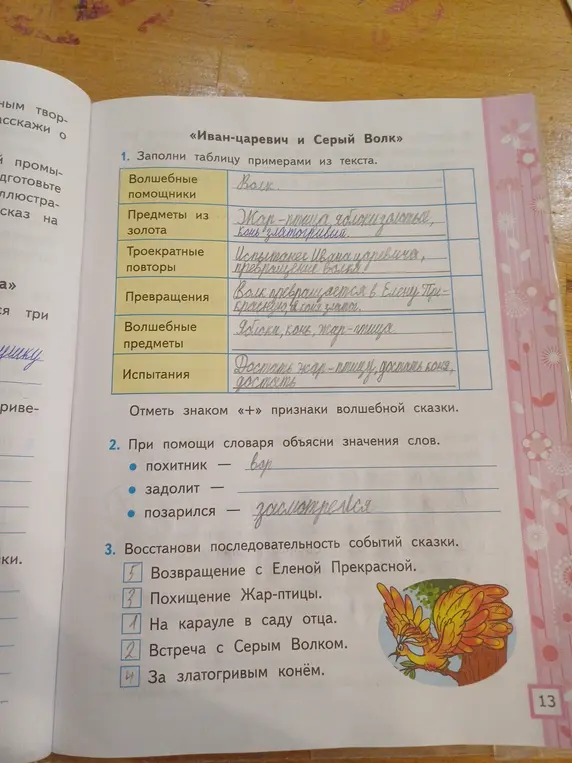 ным твор-
сскажи о
й промы-
дготовьте
ллюстра-
сказ на
а»
ся три
ушку
риве-
ки.
«Иван-царевич и Серый Волк»
1. Заполни таблицу примерами из текста.
Волшебные помощники
Волк.
Предметы из золота
Жар-птица, яблоки золотые,
конь златогривый.
Троекратные повторы
Испытание Ивана царевича,
превращение волка
Превращения
Волк превращается в Елену Пре-
красную и коня златог.
Волшебные предметы
Яблоки, конь, жар-птица
Испытания
Достать жар-птицу, достать коня,
достать
Отметь знаком «+» признаки волшебной сказки.
2. При помощи словаря объясни значения слов.
• похитник — вор
• задолит —
• позарился — засмотрелся
3. Восстанови последовательность событий сказки.
5 Возвращение с Еленой Прекрасной.
3 Похищение Жар-птицы.
1 На карауле в саду отца.
2 Встреча с Серым Волком.
4 За златогривым конём.
13